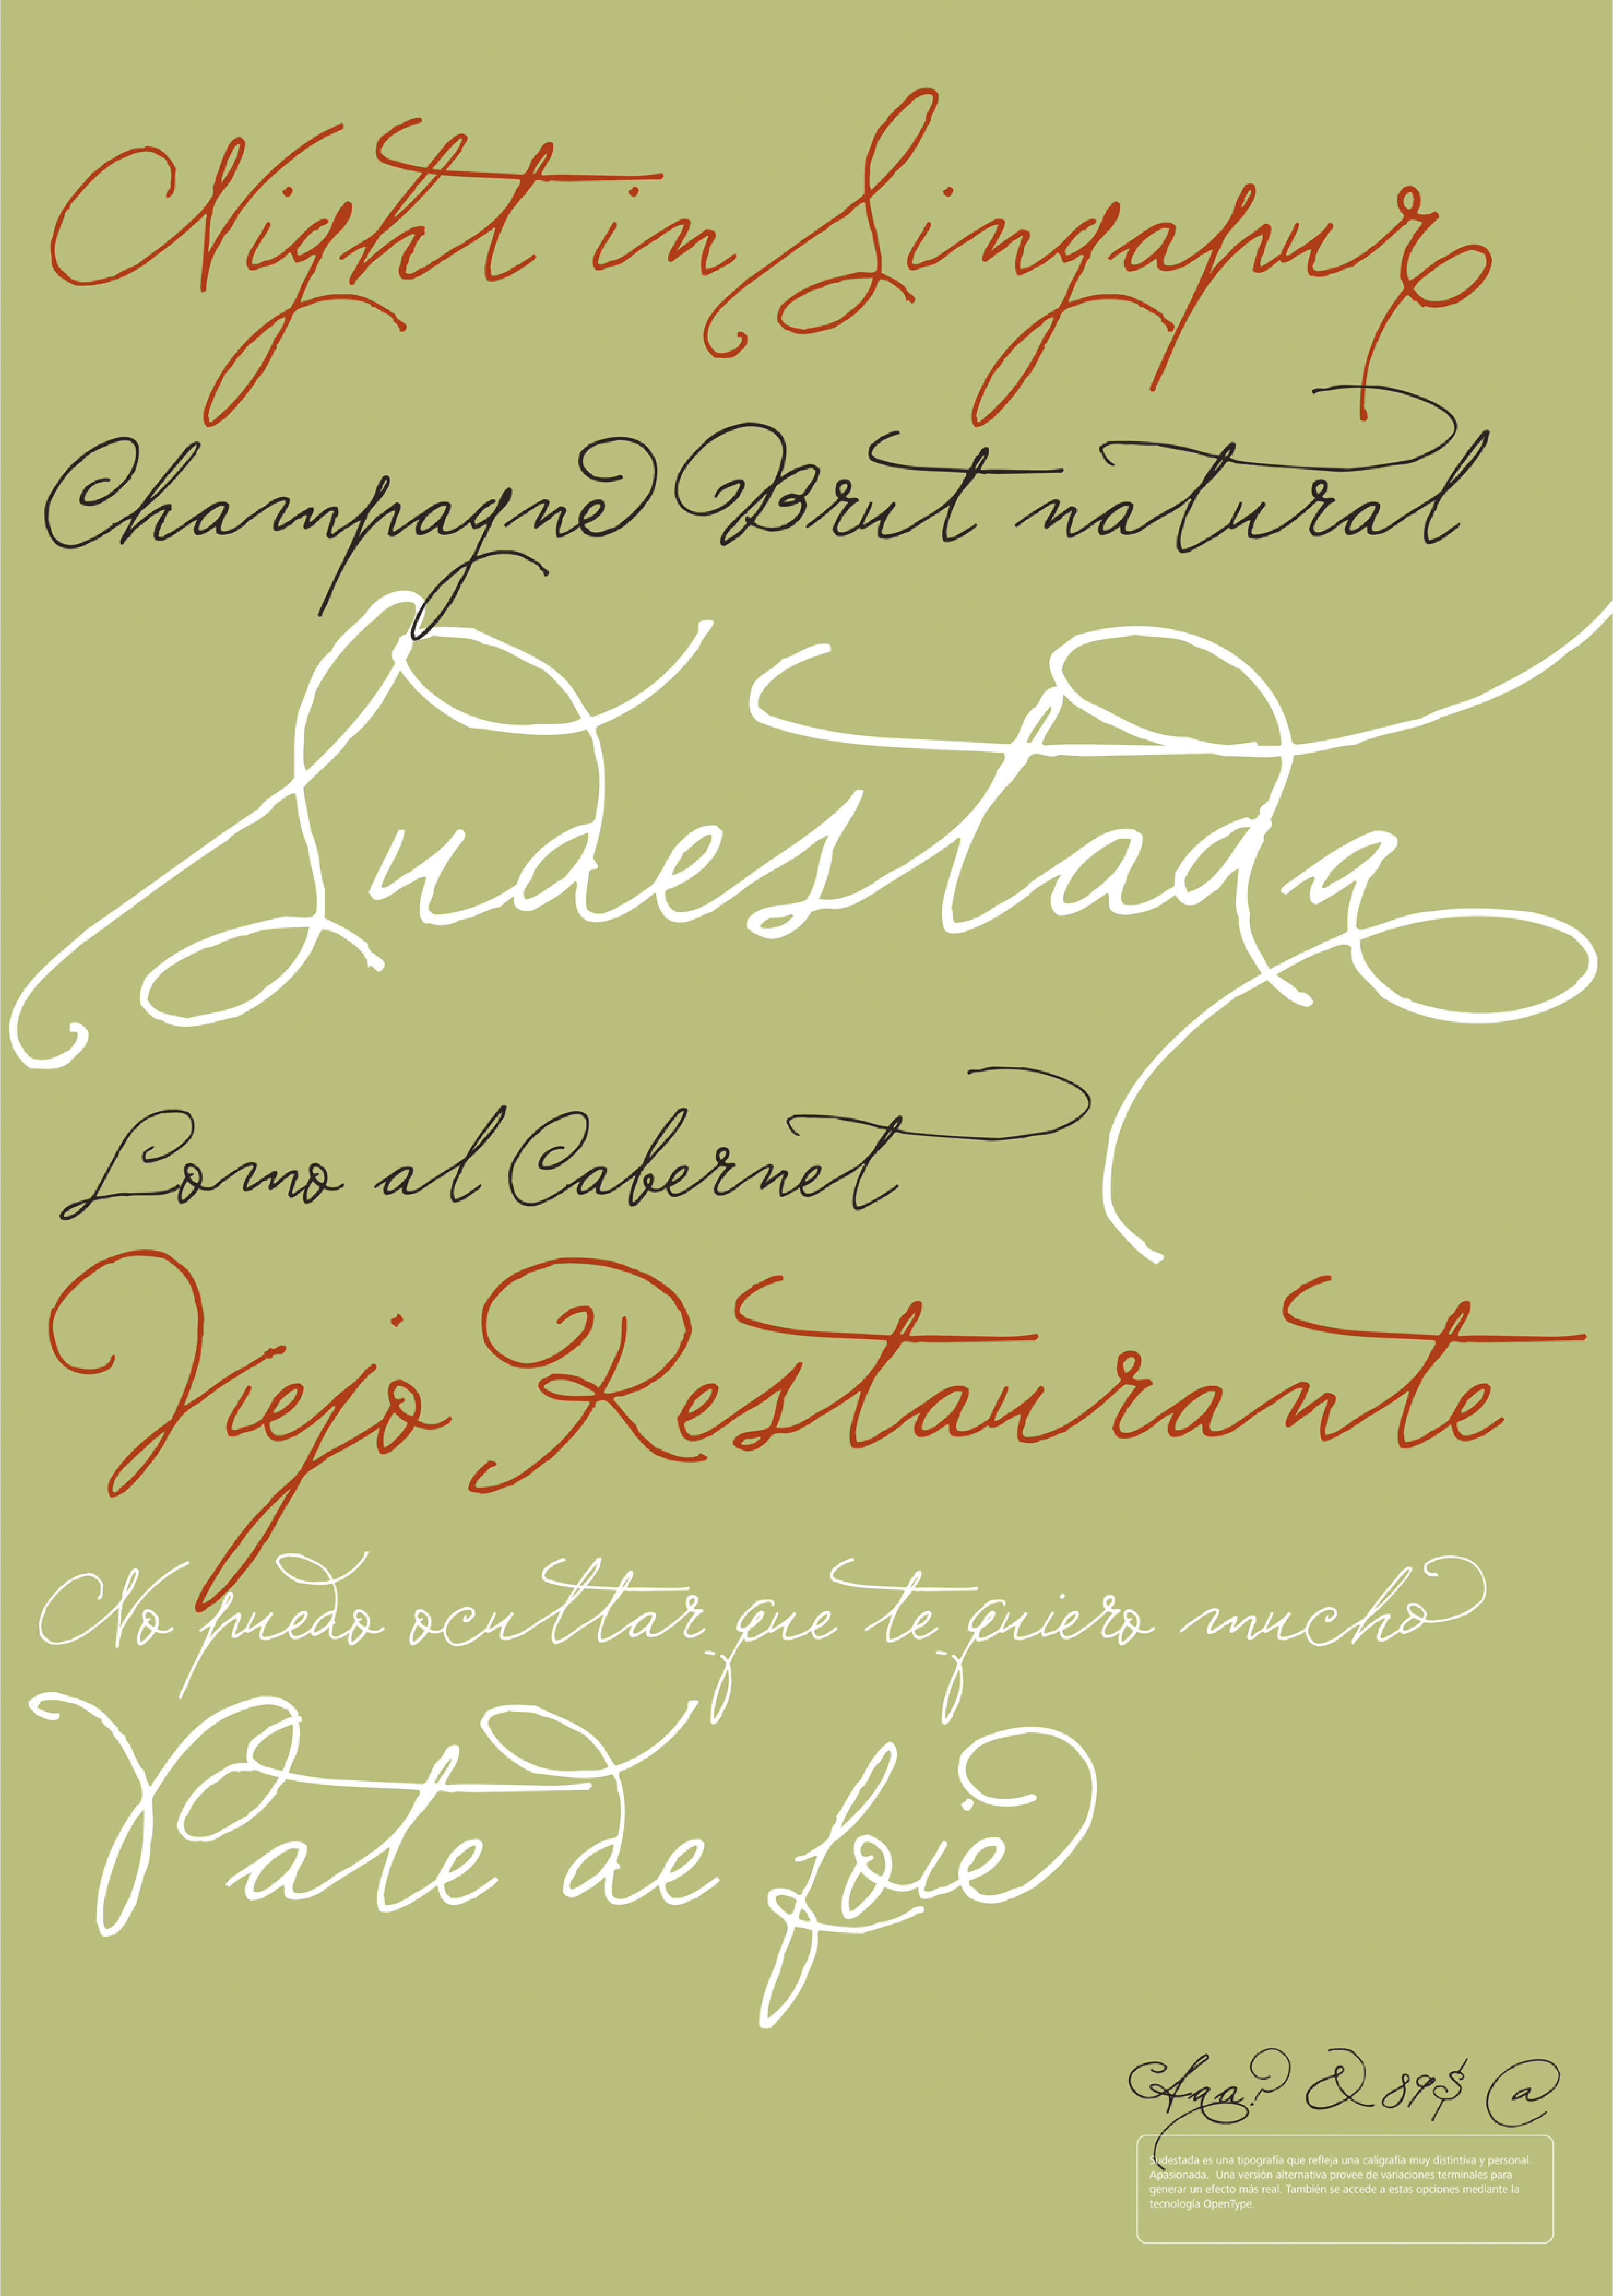 Night in Singapur
Champagne Brut natural
Sudestada
Lomo al Cabernet
Viejo Restaurante
No puedo oculttar que te quiero mucho
Pate de foie
Aaa? & 89$ @
Sudestada es una tipografía que refleja una caligrafía muy distintiva y personal.
Apasionada. Una versión alternativa provee de variaciones terminales para
generar un efecto más real. También se accede a estas opciones mediante la
tecnología OpenType.